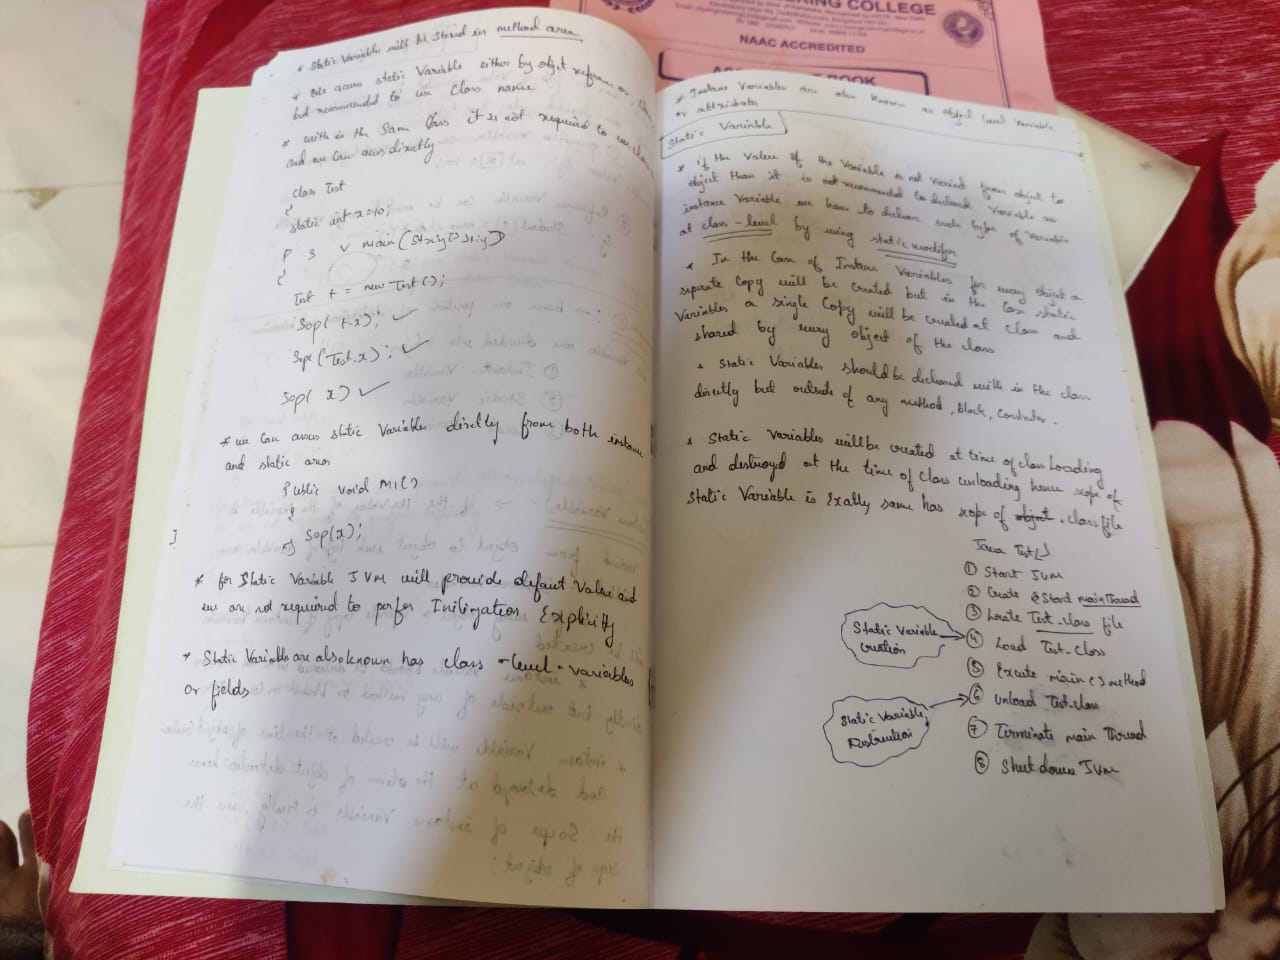 * Static Variables will be Stored in method area
* We access static Variable either by object reference or
but recommended to use Class name
* with in the Same Class it is not required to use
and we can access directly
class Test
{
static int x=10;
P S V main(String[] String)
{
Test t = new Test();
Sop(t.x); ✓
Sop(Test.x); ✓
Sop(x) ✓
* we can access static Variables directly from both instance
and static areas
Public void M1()
{
Sop(x);
* for Static Variable JVM will provide default Value and
we are not required to perfor Explicitly
* Static Variable are also known has class - level - variables
or fields
ERING COLLEGE
NAAC ACCREDITED
BOOK
* Instance Variables are also known as object level Variable
or attributes
Static Variable
* if the value of the Variable is not varied from object to
object then it is not recommended to declared Variable as
instance Variable we have to declare such type of Variable
at class-level by using static modifier
* In the Case of Instance Variables for every object a
separate Copy will be created but in the Case static
Variables a single Copy will be created at class and
shared by every object of the class
* Static Variables should be declared with in the class
directly but outside of any method, block,
* Static Variables will be created at time of class Loading
and destroyed at the time of class unloading hence scope of
Static Variable is Exally same has scope of object .class file
Java Test
① Start JVM
② Create & Start main Thread
③ Locate Test.class file
Static Variable
creation
④ Load Test.class
⑤ Execute main() method
⑥ unload Test.class
Static Variable
⑦ Terminate main Thread
⑧ Shut down JVM